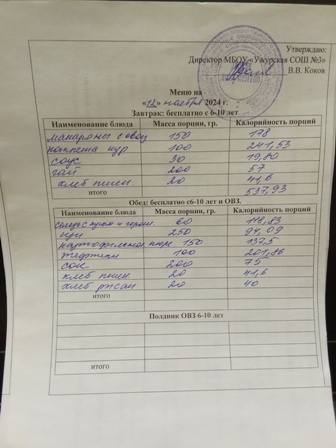 Утверждаю:
Директор МБОУ «Ужурская СОШ №3»
В.В. Коков
Меню на
« » ноября 2024 г.
Завтрак: бесплатно с 6-10 лет
Наименование блюда Масса порции, гр. Калорийность порций
макароны с овощ 150 178
котлета кур 100 241,53
соус 30 19,80
чай 200 57
хлеб пшен. 20 41,6
итого 537,93
Обед: бесплатно с6-10 лет и ОВЗ.
Наименование блюда Масса порции, гр. Калорийность порций
60 118,83
щи 250 94,09
картофельное пюре 150 137,5
тефтели 100 201,86
сок 200 75
хлеб пшен. 20 41,6
хлеб ржан 20 40
итого
Полдник ОВЗ 6-10 лет
итого